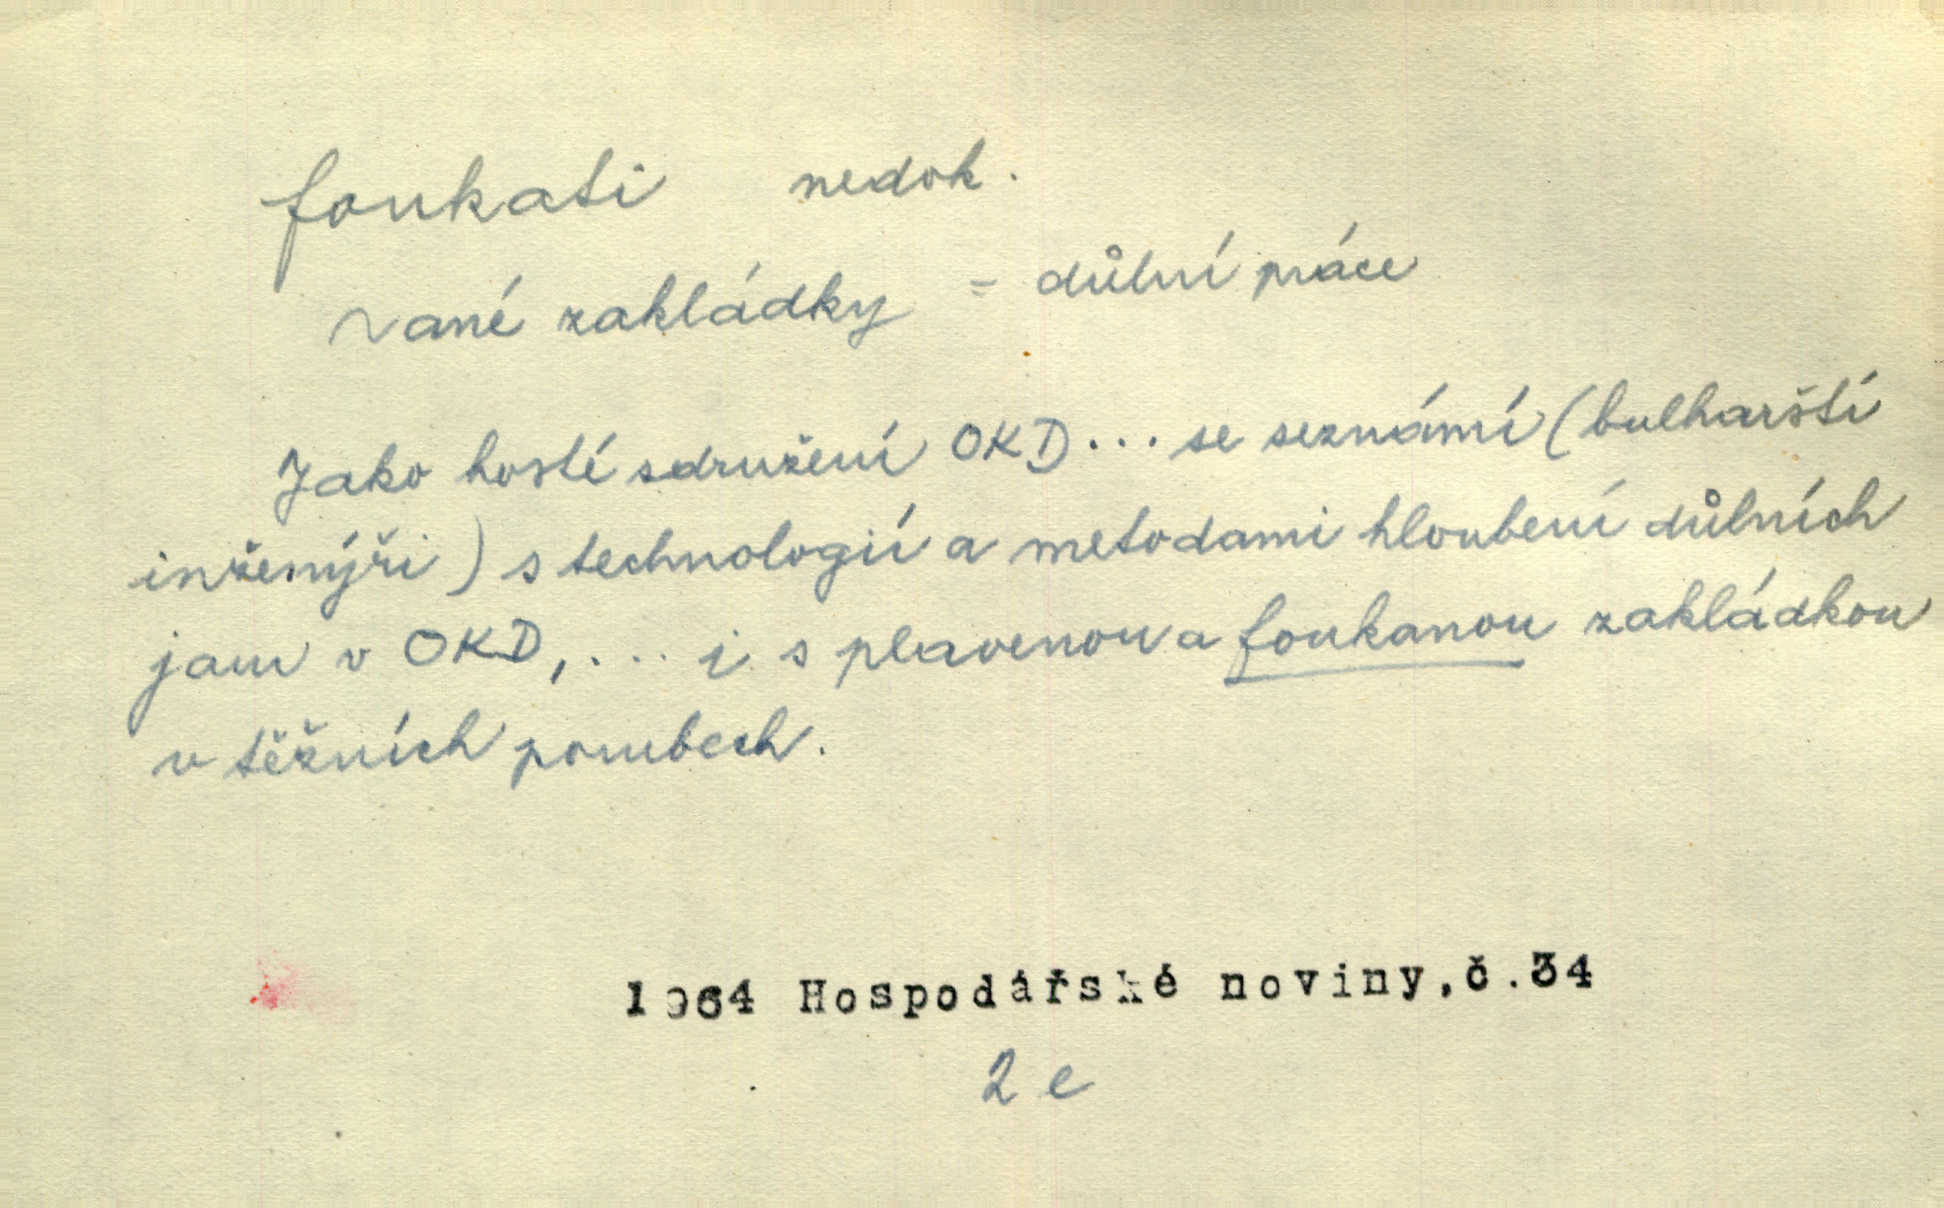 foukati nedok.
~ané zakládky = důlní práce
Jako hosté sdružení OKD... se seznámí (bulharští
inženýři) s technologií a metodami hloubení důlních
jam v OKD,... i s plavenou a foukanou zakládkou
v těžních porubech.
1964 Hospodářské noviny,č.34
2 c